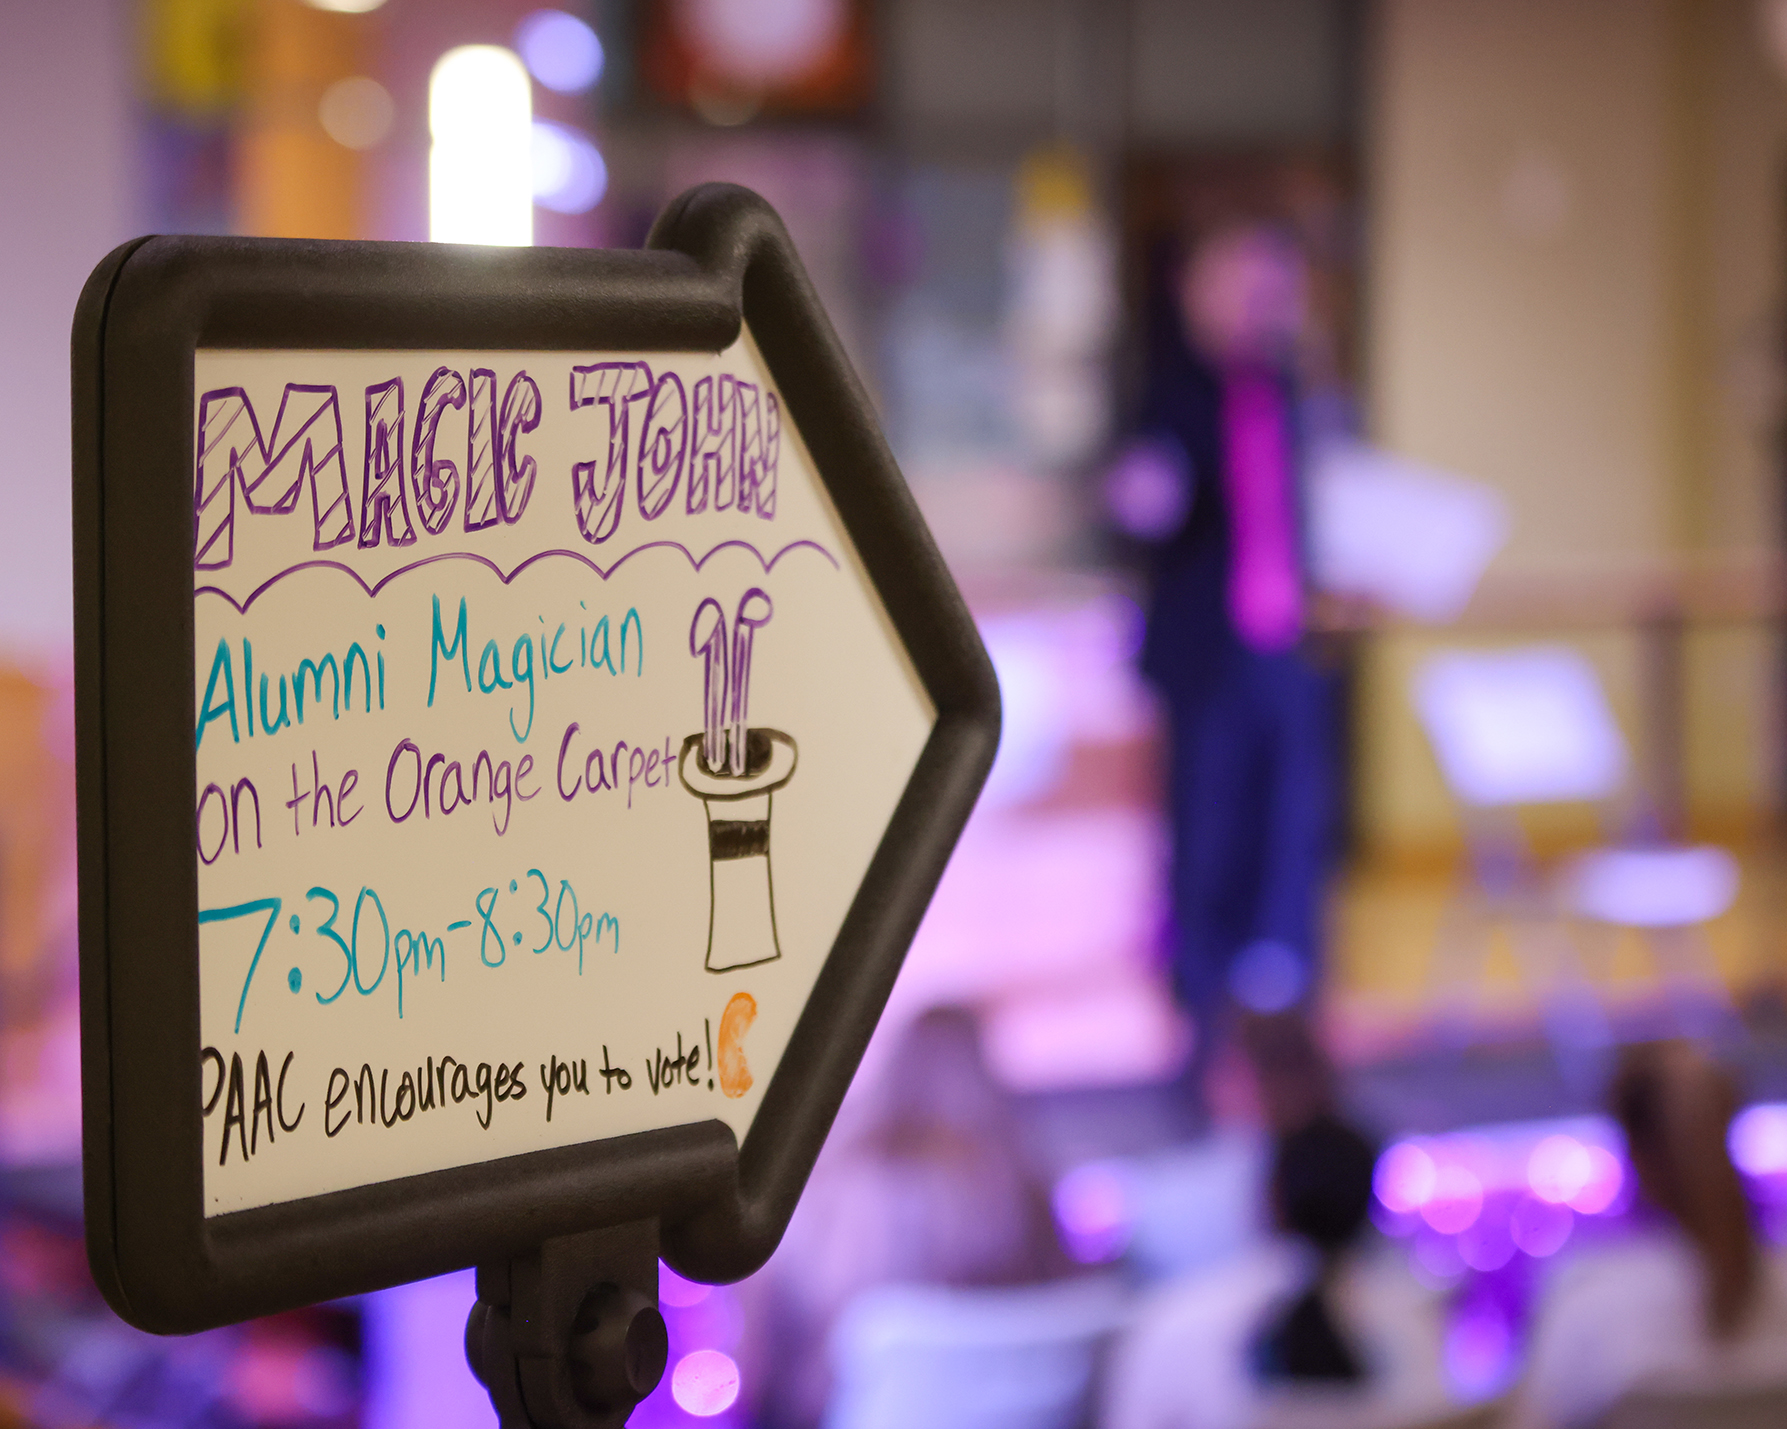 MAGIC JOHN
Alumni Magician
on the Orange Carpet
7:30pm-8:30pm
PAAC encourages you to vote! C